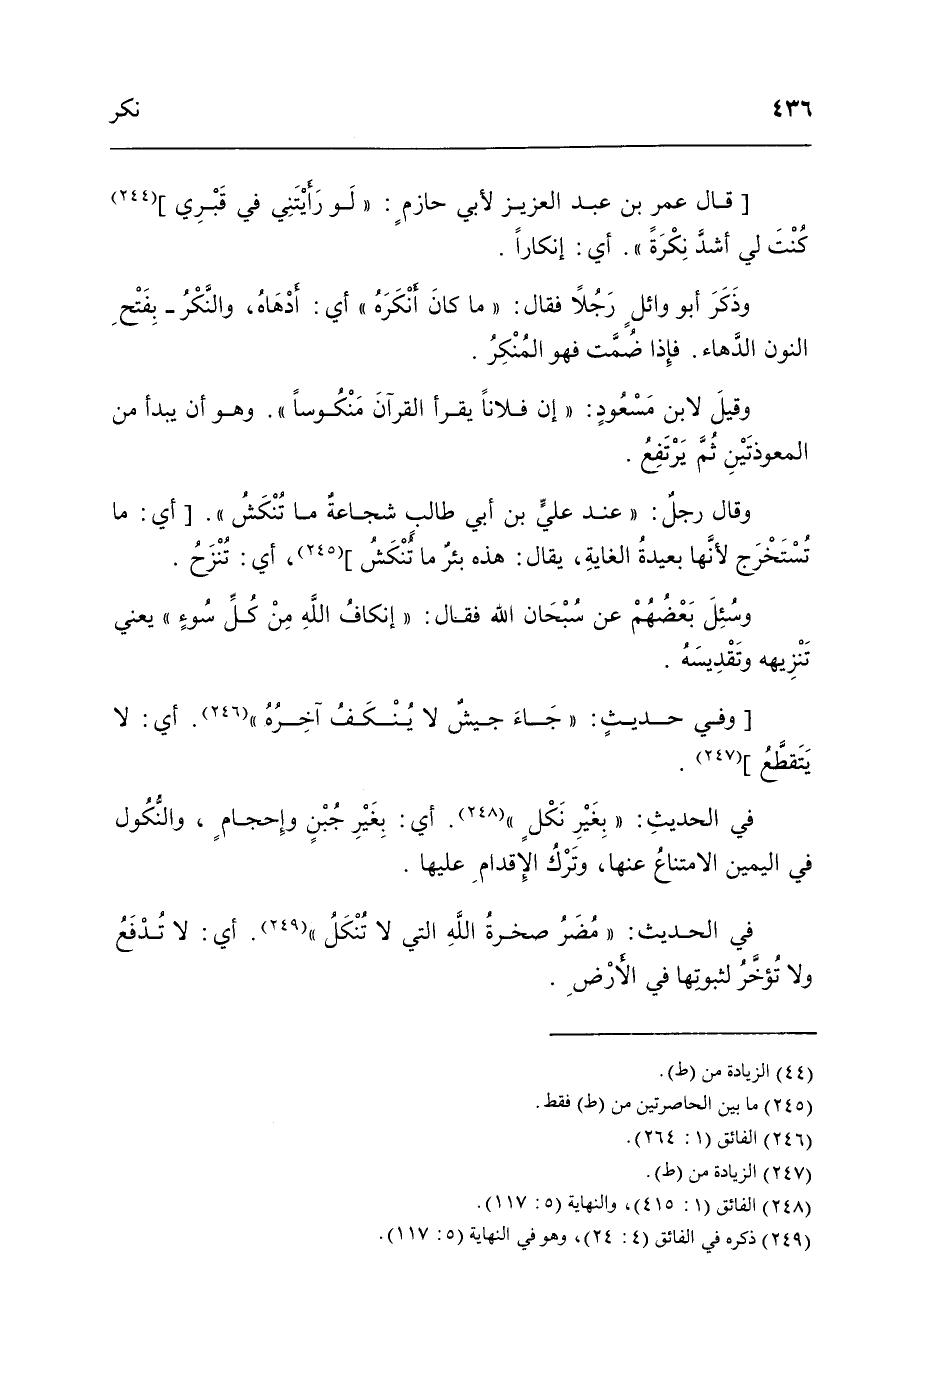 ٤٣٦ نكر
[ قال عمر بن عبد العزيز لأبي حازمٍ : « لَو رَأَيْتَنِي في قَبْرِي ](٢٤٤)
كُنْتَ لي أشدَّ نِكْرَةً ». أي : إنكاراً .
وذَكَرَ أبو وائلٍ رَجُلًا فقال : « ما كانَ أَنْكَرَهُ » أي : أَدْهَاهُ، والنَّكْرُ ـ بِفَتْحِ
النون الدَّهاء. فإذا ضُمَّت فهو المُنْكِرُ .
وقيلَ لابن مَسْعُودٍ : « إن فلاناً يقرأ القرآنَ مَنْكُوساً ». وهو أن يبدأ من
المعوذتَيْنِ ثُمَّ يَرْتَفِعُ .
وقال رجلٌ : « عند عليِّ بن أبي طالبٍ شجاعةٌ ما تُنْكَشُ ». [ أي : ما
تُسْتَخْرَج لأنَّها بعيدةُ الغايةِ، يقال : هذه بئرٌ ما تُنْكَشُ ](٢٤٥)، أي : تُنْزَحُ .
وسُئِلَ بَعْضُهُمْ عن سُبْحَان الله فقال : « إنكافُ اللَّهِ مِنْ كُلِّ سُوءٍ » يعني
تَنْزِيهه وتَقْدِيسَهُ .
[ وفي حديثٍ : « جَاءَ جيشٌ لا يُنْكَفُ آخِرُهُ »(٢٤٦). أي : لا
يَتَقطَّعُ ](٢٤٧) .
في الحديثِ : « بِغَيْرِ نَكْلٍ »(٢٤٨). أي : بِغَيْرِ جُبْنٍ وإحجامٍ ، والنُّكُول
في اليمين الامتناعُ عنها، وتَرْكُ الإقدامِ عليها .
في الحديث : « مُضَرُ صخرةُ اللَّهِ التي لا تُنْكَلُ »(٢٤٩). أي : لا تُدْفَعُ
ولا تُؤخَّرُ لثبوتِها في الأَرْضِ .
(٤٤) الزيادة من (ط).
(٢٤٥) ما بين الحاصرتين من (ط) فقط.
(٢٤٦) الفائق (١ : ٢٦٤).
(٢٤٧) الزيادة من (ط).
(٢٤٨) الفائق (١ : ٤١٥)، والنهاية (٥ : ١١٧).
(٢٤٩) ذكره في الفائق (٤ : ٢٤)، وهو في النهاية (٥ : ١١٧).